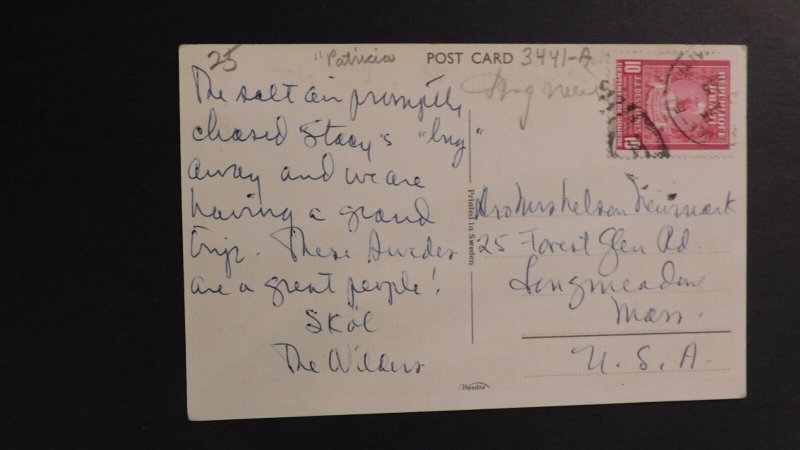 25
"Patricia
POST CARD
3441-A
The salt air promptly
chased Stacy's "bug"
away and we are
having a grand
trip. These Swedes
are a great people!
Skōl
The Wilders
Printed in Sweden
REPUBLIQUE
10
10
Mrs Nelson Newmark
25 Forest Glen Rd.
Longmeadow
Mass.
U. S. A.